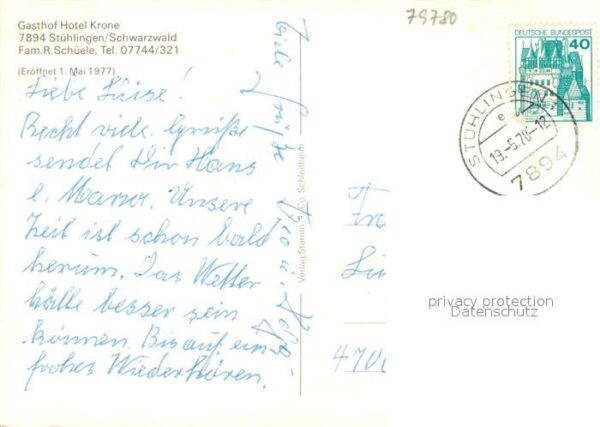 Gasthof Hotel Krone
7894 Stühlingen/Schwarzwald
Fam.R.Schüele, Tel. 07744/321
(Eröffnet 1. Mai 1977)
79780
DEUTSCHE BUNDESPOST
40
STÜHLINGEN
e
19.-5.78-12
7894
Liebe Luise!
Recht viele Grüße
sendet Dir Hans
Unsere
Zeit ist schon bald
herum. Das Wetter
hätte besser sein
können. Bis auf ein
frohes Wiederhören.
Viele Grüße
Verlag Stamm Co. Schleitheim
Fra
47
privacy protection
Datenschutz